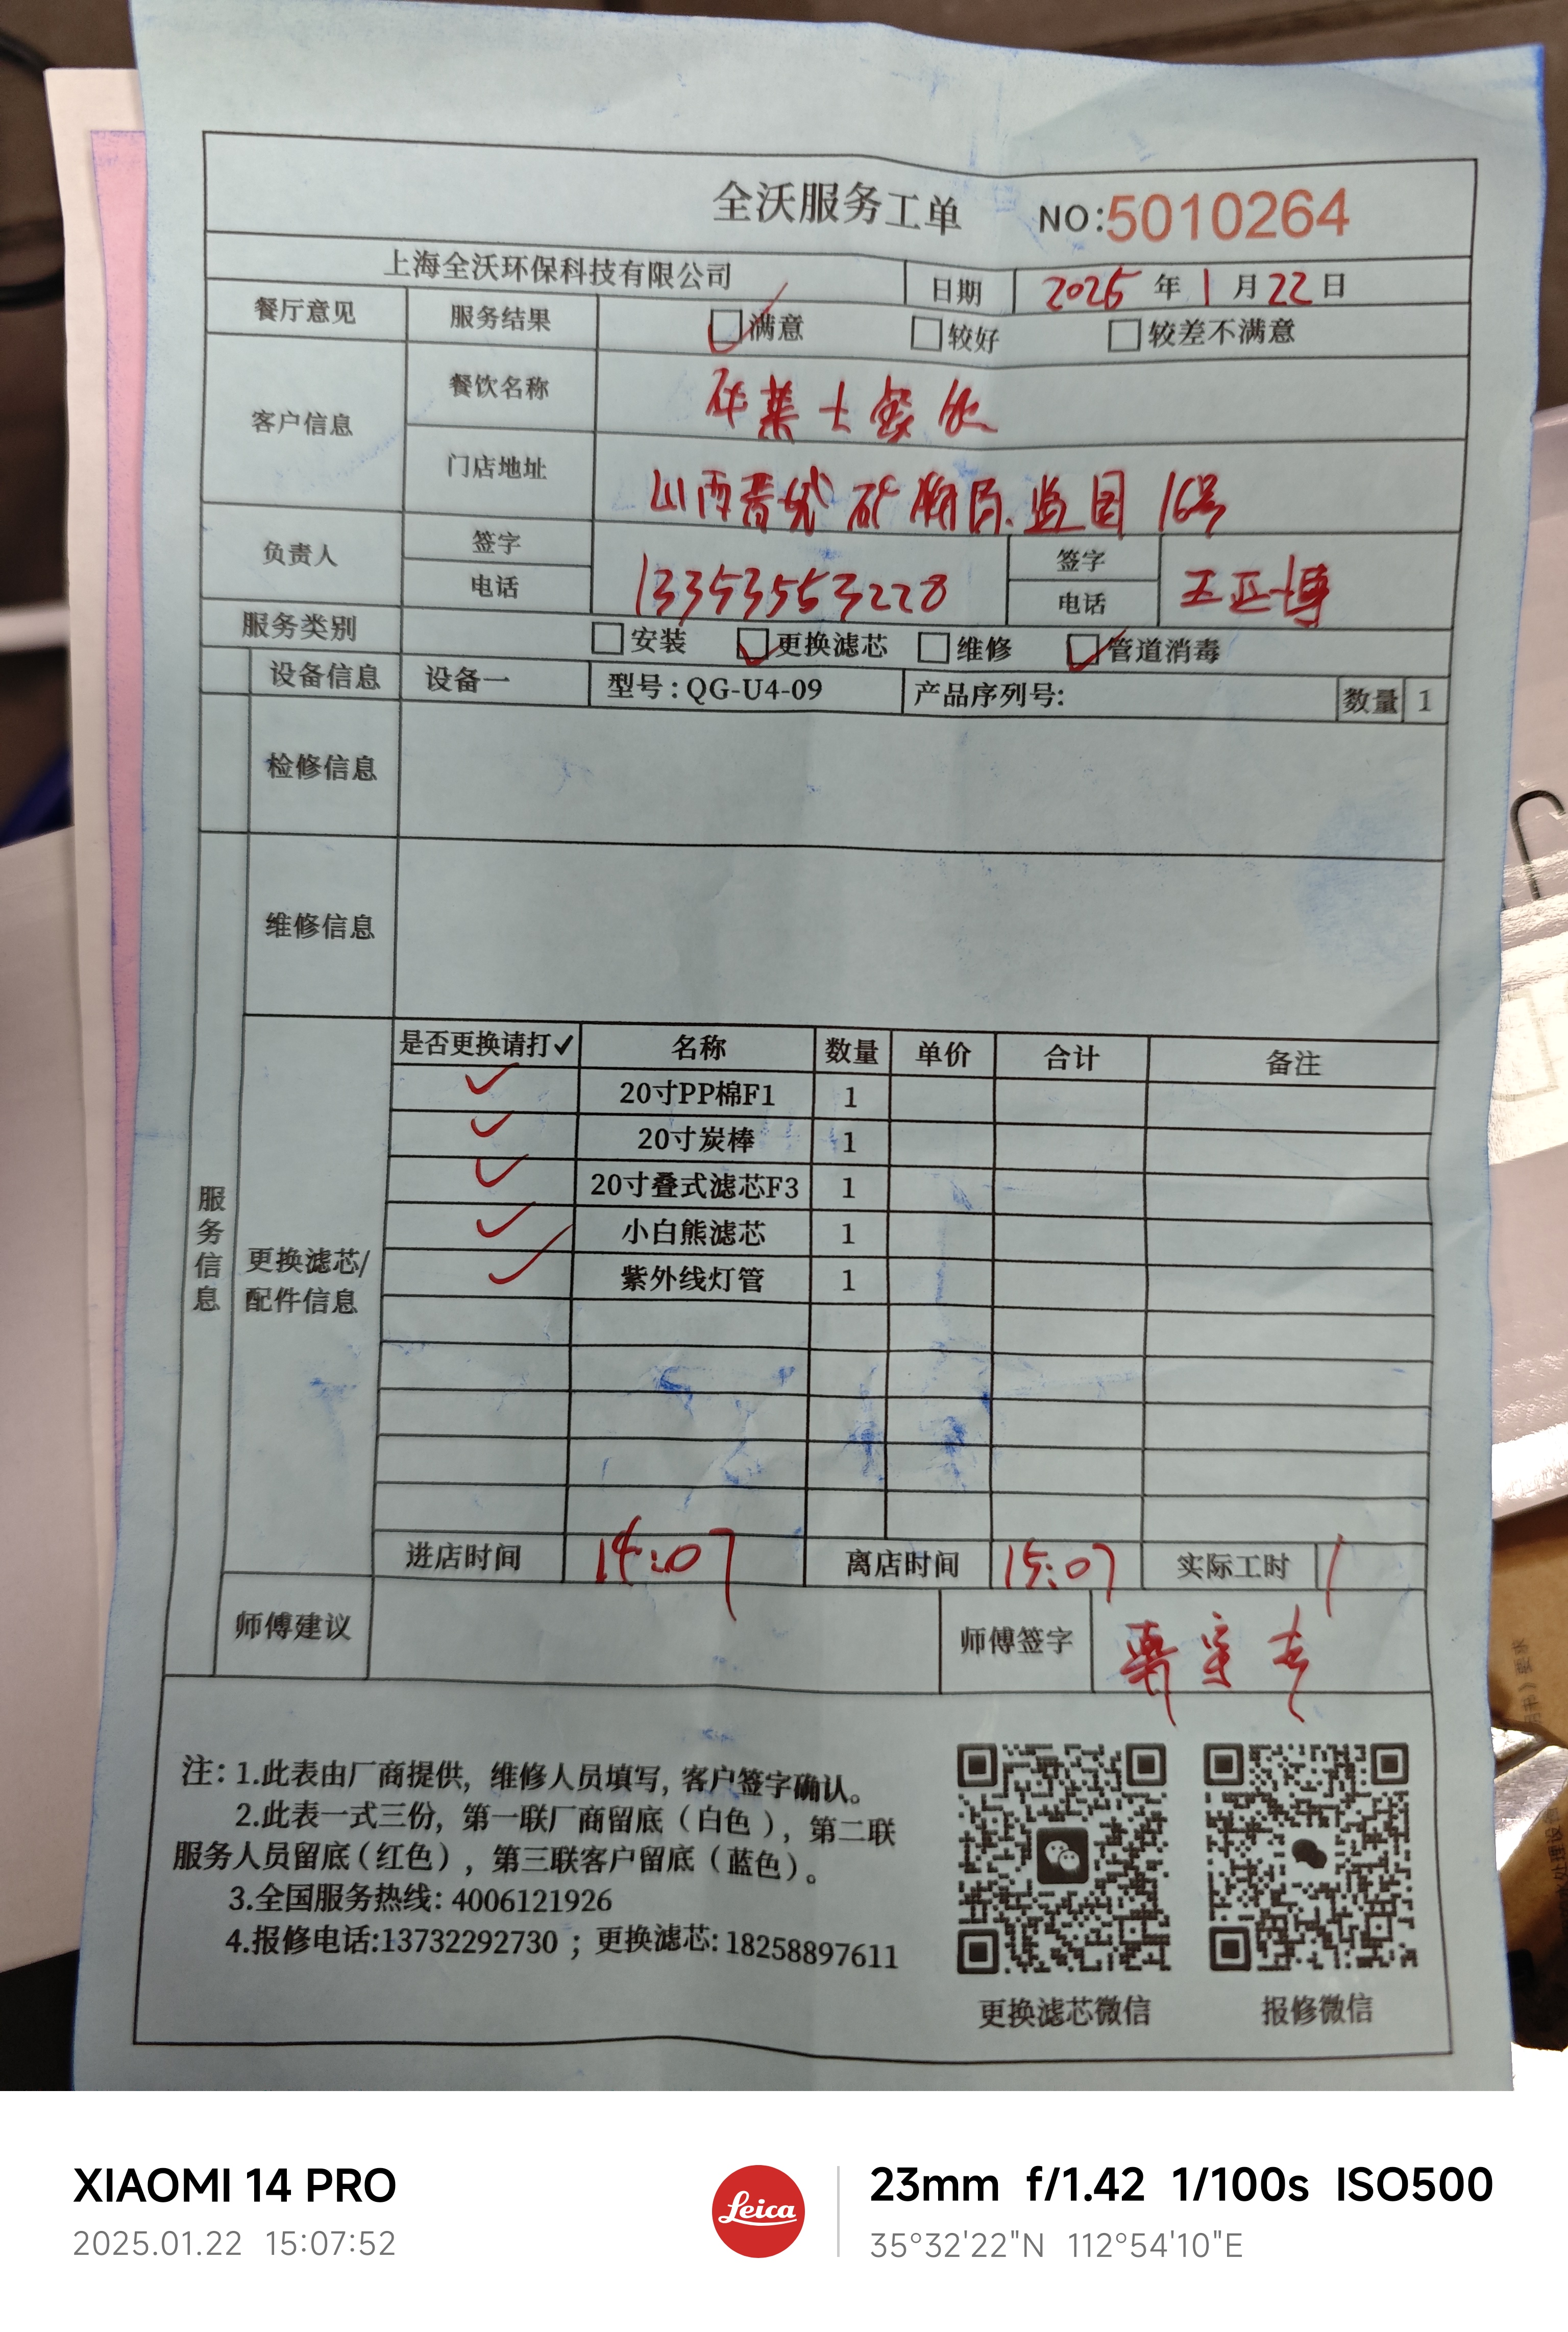 全沃服务工单 NO:5010264
上海全沃环保科技有限公司 日期 2025 年 1 月 22 日
餐厅意见 服务结果 满意 较好 较差不满意
客户信息 餐饮名称 莱士餐饮
门店地址 山西晋城 16号
负责人 签字 签字
电话 13353553228 电话 王正博
服务类别 安装 更换滤芯 维修 管道消毒
设备信息 设备一 型号:QG-U4-09 产品序列号: 数量 1
检修信息
维修信息
服务信息
更换滤芯/
配件信息
是否更换请打✓ 名称 数量 单价 合计 备注
✓ 20寸PP棉F1 1
✓ 20寸炭棒 1
✓ 20寸叠式滤芯F3 1
✓ 小白熊滤芯 1
✓ 紫外线灯管 1
进店时间 14:07 离店时间 15:07 实际工时 1
师傅建议 师傅签字
注: 1.此表由厂商提供, 维修人员填写, 客户签字确认。
2.此表一式三份, 第一联厂商留底（白色）, 第二联
服务人员留底(红色), 第三联客户留底（蓝色）。
3.全国服务热线: 4006121926
4.报修电话:13732292730 ; 更换滤芯: 18258897611
更换滤芯微信 报修微信
XIAOMI 14 PRO
2025.01.22 15:07:52
Leica
23mm f/1.42 1/100s ISO500
35°32'22"N 112°54'10"E